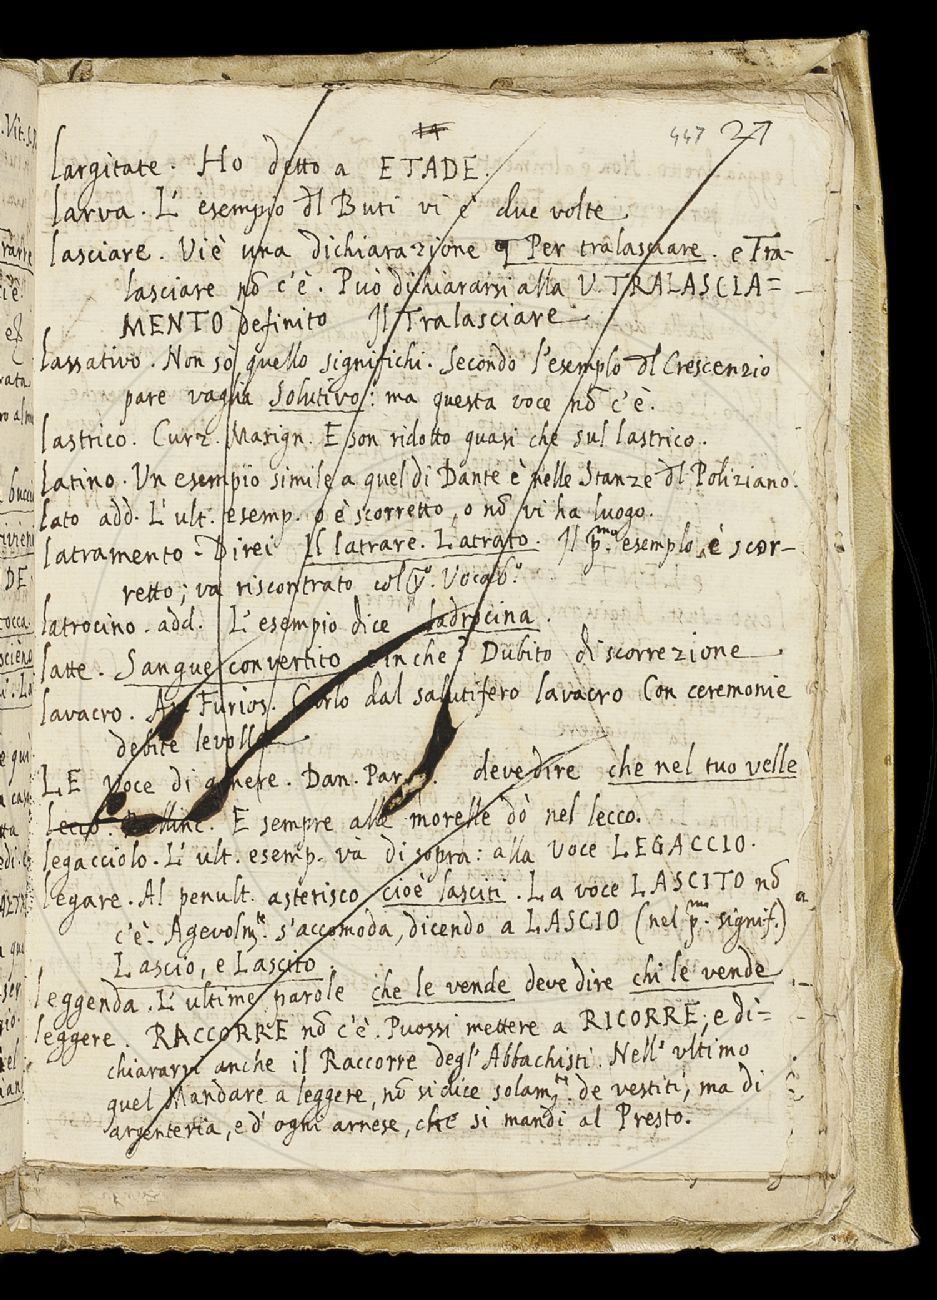 447 27
14
Largitate. Ho detto a ETADE.
Larva. L' esempio dl Buti vi è due volte
Lasciare. Vi è una dichiarazione Per tralasciare. e Tra-
lasciare nō c'è. Può dichiararsi alla V. TRALASCIA=
MENTO definito Il Tralasciare.
Lassativo. Non sò quello significhi. Secondo l'esemplo dl Crescenzio
pare vaglia Solutivo: ma questa voce nō c'è.
Lastrico. Curz. Marign. E son ridotto quasi che sul lastrico.
Latino. Un esempio simile a quel di Dante è nelle Stanze dl Poliziano.
Lato add. L' ult. esemp. o è scorretto, o nō vi ha luogo.
Latramento. Direi Il latrare. Latrato. Il p.mo esemplo è scor-
retto; va riscontrato col Vocab.o
Latrocino. add. L' esempio dice ladrocina.
Latte. Sangue convertito Dubito di scorrezione
Lavacro. Ar. Furios. dal salutifero lavacro Con ceremonie
debite levollo
LE Voce di genere. Dan. Par. deve dire che nel tuo velle
Lecco. E sempre alle morelle dò nel lecco.
Legacciolo. L' ult. esemp. va di sopra: alla Voce LEGACCIO.
Legare. Al penult. asterisco cioè lasciti. La voce LASCITO nō
c'è. Agevolm.te s'accomoda, dicendo a LASCIO (nel p.mo signif.)
Lascio, e Lascito.
Leggenda. L' ultime parole che le vende deve dire chi le vende
Leggere. RACCORRE nō c'è. Puossi mettere a RICORRE; e di=
chiararsi anche il Raccorre degl' Abbachisti. Nell' ultimo
quel Mandare a leggere, nō si dice solam.te de vestiti, ma di
argenteria, e d' ogni arnese, che si mandi al Presto.